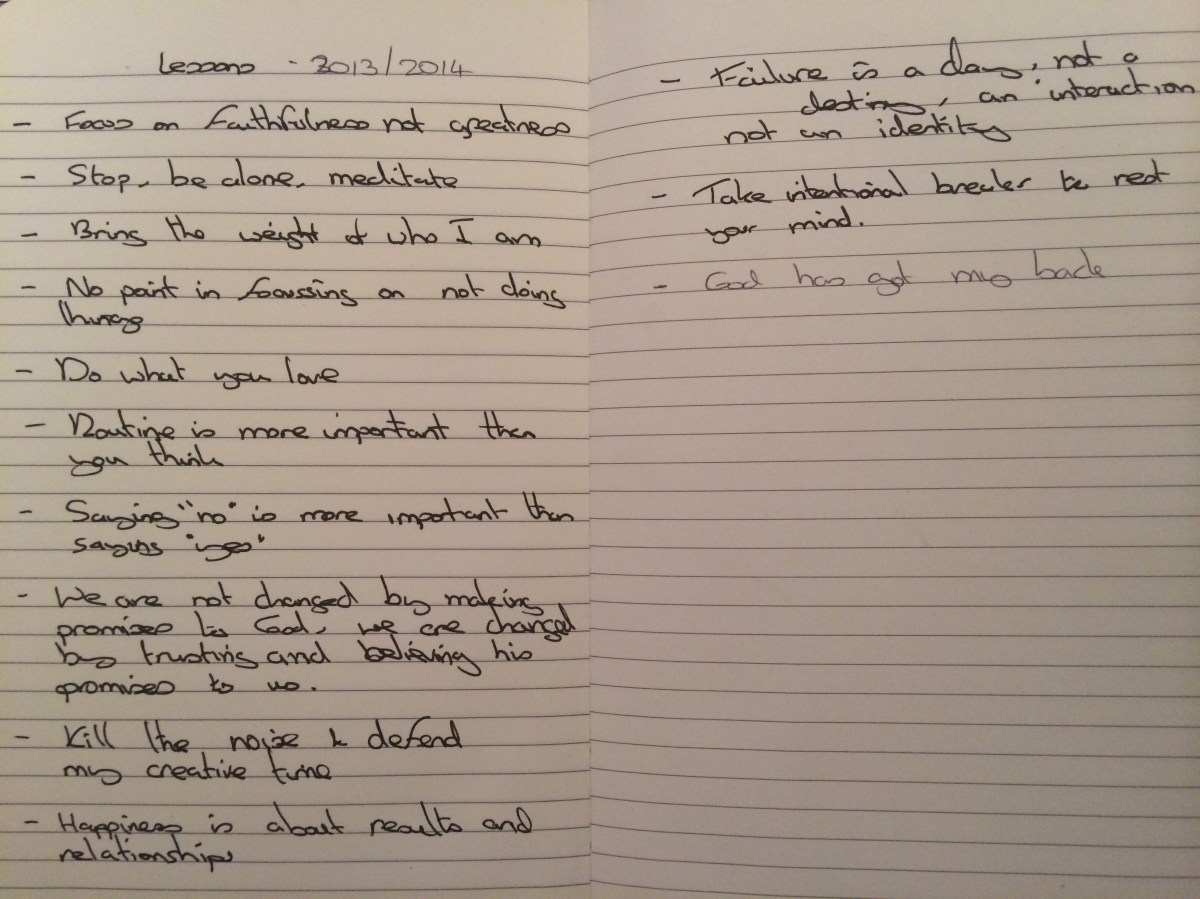 Lessons - 2013/2014
- Focus on faithfulness not greatness
- Stop, be alone, meditate
- Bring the weight of who I am
- No point in focussing on not doing
things
- Do what you love
- Routine is more important than
you think
- Saying "no" is more important than
saying "yes"
- We are not changed by making
promises to God, we are changed
by trusting and believing his
promises to us.
- Kill the noise & defend
my creative time
- Happiness is about results and
relationships
- Failure is a day, not a
destiny, an interaction
not an identity
- Take intentional breaks to rest
your mind.
- God has got my back